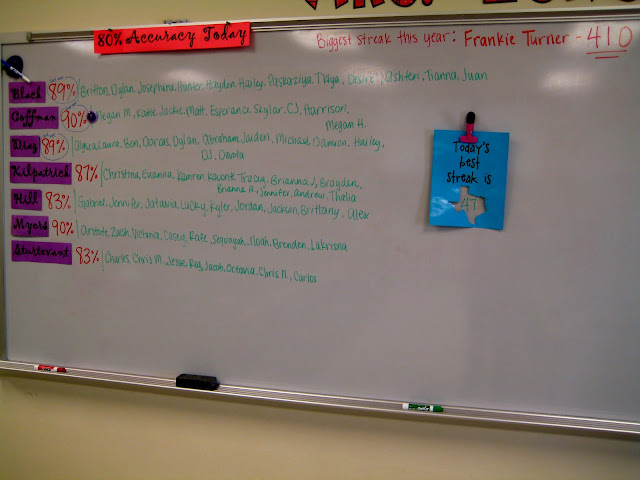 80% Accuracy Today
Biggest streak this year: Frankie Turner - 410
Black 89% Britton, Dylan, Josephine, Hunter, Hayden, Harley, Ashten, Tianna, Juan
Coffman 90% Megan M., Katie, Jackie, Matt, Esperance, Skylar, CJ, Harrison,
Megan H.
Diaz 89% Laura, Ben, Dorcas, Dylan, Abraham, Jaiden, Michael, Damion, Harley,
Kilpatrick 87% Christina, Kamren, Tracey, Brianna J, Brayden,
Brianna R., Jennifer, Andrew, Thalia
Hill 83% Gabriel, Jennifer, Jatavia, Lucky, Kyler, Jordan, Jackson, Brittany, Alex
Myers 90% Zach, Victoria, Casey, Rafe, Sequoyah, Noah, Brenden, Lakrisna
Sturtevant 83% Charles, Chris M., Jesse, Ray, Jacob, Octavia, Chris N., Carlos
Today's
best
streak is
47